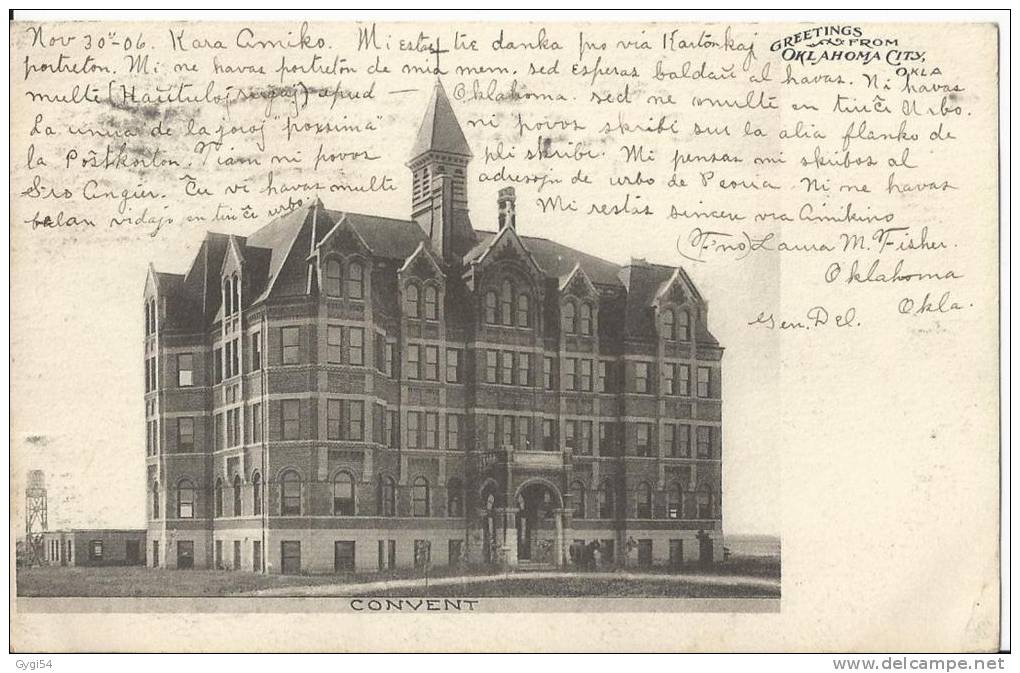 Nov 30ᵘ-06. Kara Amiko. Mi estas tre danka pro via Kartonkaj
portreton. Mi ne havas portreton de mia mem. sed Esperas baldaŭ al havas. Ni havas
multe apud — Oklahoma. sed ne multe en tiuĉi Urbo.
La unua de la "proxsima" ni povos skribi sur la alia flanko de
la Poŝtkorton. Tiam ni povos pli skribi. Mi pensas mi skribos al
Sro Angier. Ĉu vi havas multe adresojn de urbo de Peoria Ni ne havas
belan vidajo en tiuĉi urbo. Mi restas sincere via Amikino
(Fino) Laura M. Fisher.
Oklahoma
Okla.
Gen. Del.
GREETINGS
FROM
OKLAHOMA CITY,
OKLA
CONVENT
Gygi54
http://www.delcampe.net